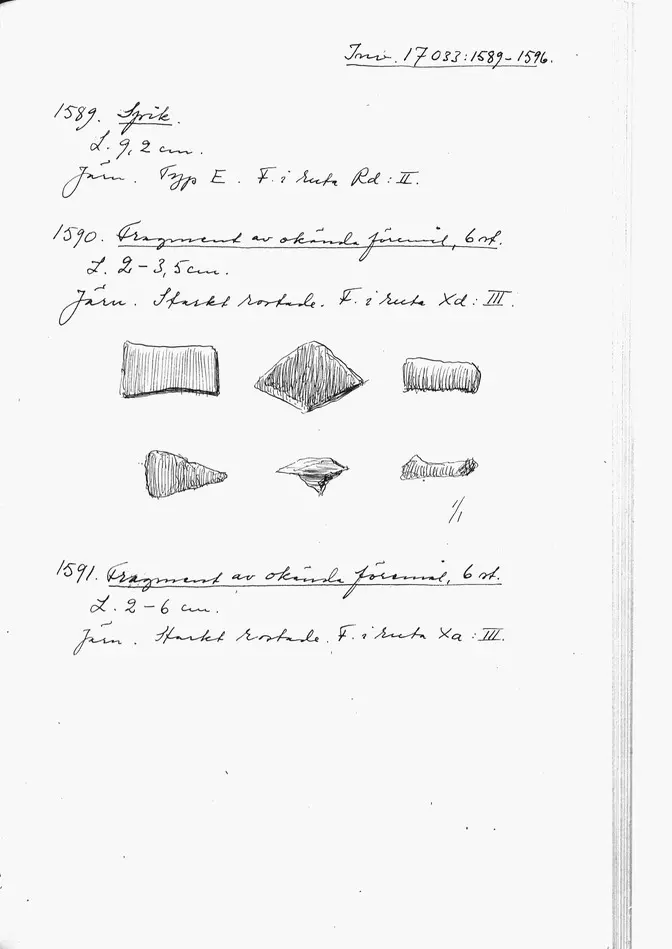 Inv. 17033:1589-1596.
1589. Spik.
L. 9,2 cm.
Järn. Typ E. F. i ruta Rd: II.
1590. Fragment av okända föremål, 6 st.
L. 2-3,5 cm.
Järn. Starkt rostade. F. i ruta Xd: III.
1/1
1591. Fragment av okända föremål, 6 st.
L. 2-6 cm.
Järn. Starkt rostade. F. i ruta Xa: III.